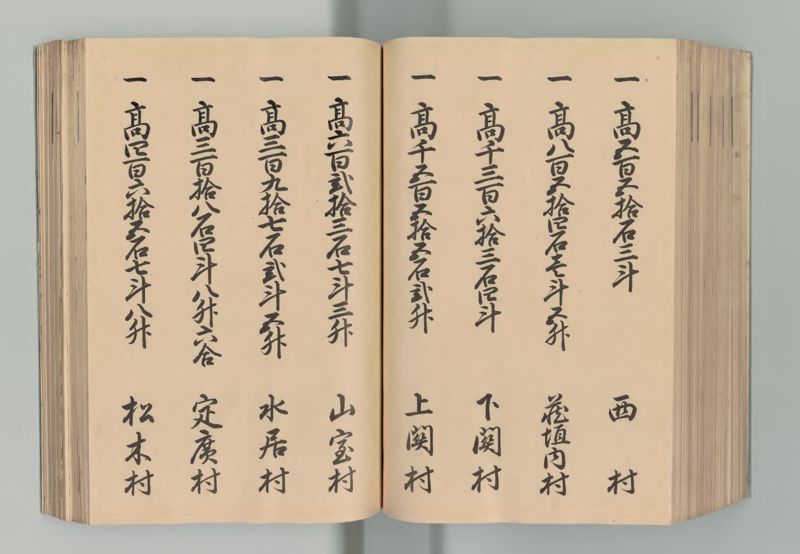 一 高五百五拾石三斗 西村
一 高八百五拾四石壱斗五升 荘垣内村
一 高千三百六拾三石四斗 下関村
一 高千五百五拾五石弐升 上関村
一 高六百弐拾三石七斗三升 山室村
一 高三百九拾七石弐斗五升 水居村
一 高三百拾八石四斗八升六合 定廣村
一 高四百六拾五石七斗八升 松木村